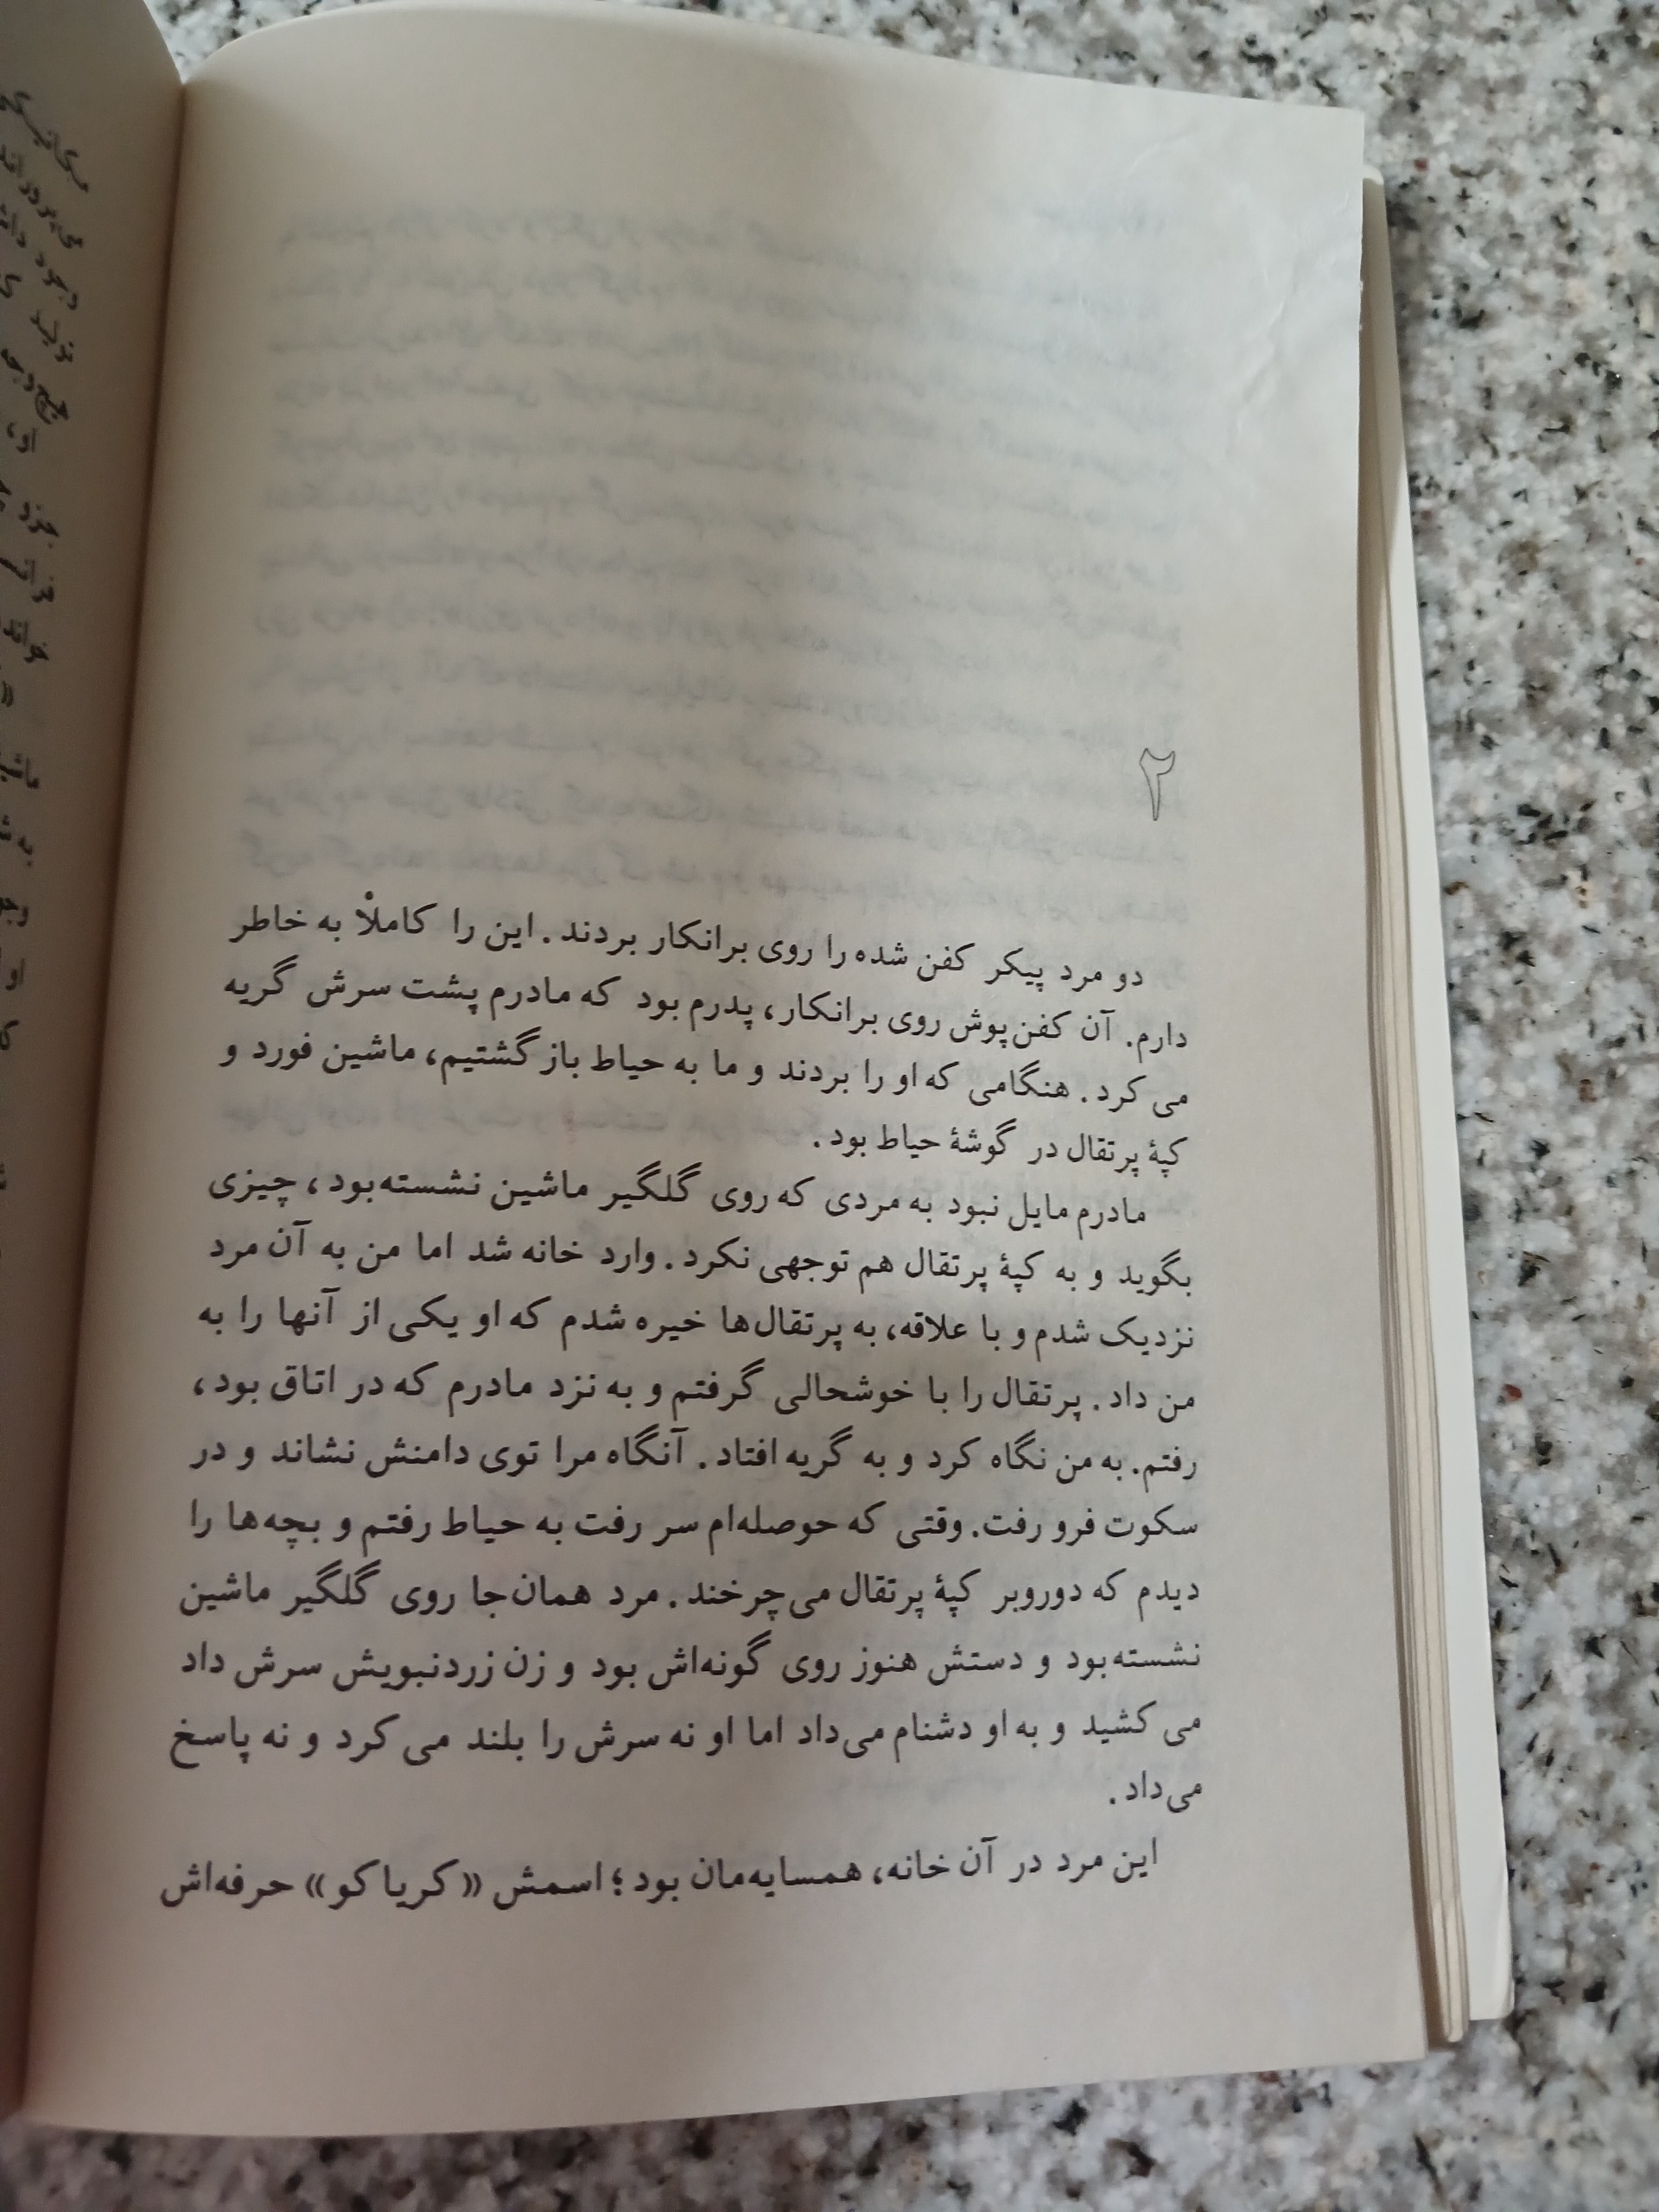 ۲
دو مرد پیکر کفن شده را روی برانکار بردند. این را کاملاً به خاطر
دارم. آن کفن‌پوش روی برانکار، پدرم بود که مادرم پشت سرش گریه
می کرد. هنگامی که او را بردند و ما به حیاط بازگشتیم، ماشین فورد و
کپهٔ پرتقال در گوشهٔ حیاط بود.
مادرم مایل نبود به مردی که روی گلگیر ماشین نشسته‌بود، چیزی
بگوید و به کپهٔ پرتقال هم توجهی نکرد. وارد خانه شد اما من به آن مرد
نزدیک شدم و با علاقه، به پرتقال‌ها خیره شدم که او یکی از آنها را به
من داد. پرتقال را با خوشحالی گرفتم و به نزد مادرم که در اتاق بود،
رفتم. به من نگاه کرد و به گریه افتاد. آنگاه مرا توی دامنش نشاند و در
سکوت فرو رفت. وقتی که حوصله‌ام سر رفت به حیاط رفتم و بچه‌ها را
دیدم که دوروبر کپهٔ پرتقال می‌چرخند. مرد همان‌جا روی گلگیر ماشین
نشسته‌بود و دستش هنوز روی گونه‌اش بود و زن زردنبویش سرش داد
می کشید و به او دشنام می‌داد اما او نه سرش را بلند می کرد و نه پاسخ
می‌داد.
این مرد در آن خانه، همسایه‌مان بود؛ اسمش «کریاکو» حرفه‌اش